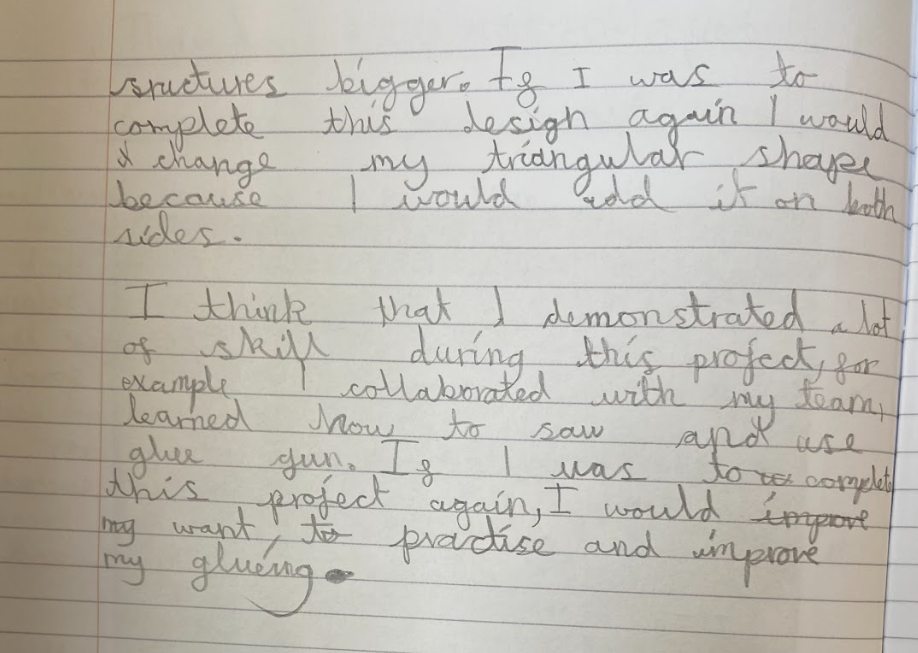 structures bigger. If I was to
complete this design again I would
change my triangular shape
because I would add it on both
sides.
I think that I demonstrated a lot
of skill during this project, for
example I collaborated with my team,
learned how to saw and use
glue gun. If I was to complete
this project again, I would improve
my want, to practise and improve
my glueing.